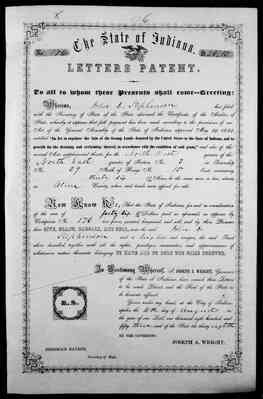 The State of Indiana.
No. 176
LETTERS PATENT.
To all to whom these Presents shall come—Greeting:
Whereas, John D. Stephenson has filed
with the Secretary of State of the State aforesaid the Certificate of the Auditor of
State, whereby it appears that full payment has been made according to the provisions of an
Act of the General Assembly of the State of Indiana approved May
"An Act to regulate the Sale of the Swamp Lands donated by the United States to the State of Indiana, and to
provide for the draining and reclaiming thereof, in accordance with the condition of said grant," and also of the
several Acts supplemental thereto, for the North East
North East quarter of Section No. 3 in Township
No. 29 North of Range No. 15 East containing
County, which said tract was offered for sale.
Now Know Ye, That the State of Indiana for and in consideration
of the sum of Dollars paid as aforesaid, as appears by
Certificate No. 176 has given, granted, bargained and sold, and by these Presents
DOES GIVE, GRANT, BARGAIN, AND SELL, unto the said John D.
Stephenson and to heirs and assigns, the said Tract
above described together with all the rights, privileges, immunities, and appurtenances of
whatsoever nature thereunto belonging TO HAVE AND TO HOLD THE SAME FOREVER.
In Testimony Whereof, I, JOSEPH A. WRIGHT, Governor
of the State of Indiana, have caused these Letters
to be made Patent, and the Seal of the State to
be hereunto affixed.
L. S.
Given under my hand, at the City of Indianapolis,
the day of August in
the year of our Lord, one thousand eight hundred and
fifty three and of the State the thirty eighth
BY THE GOVERNOR:
JOSEPH A. WRIGHT.
Secretary of State.